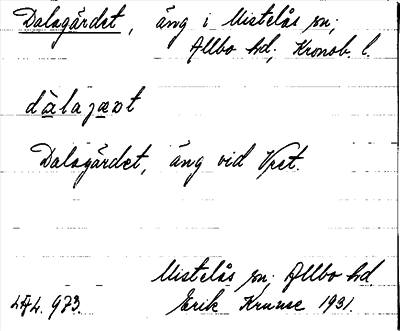 Dalagärdet, äng i Mistelås sn;
Allbo hd, Kronob. l.
dàlajæʀt
Dalagärdet, äng vid Vret.
Mistelås sn; Allbo hd
973. Erik Kruuse 1931.